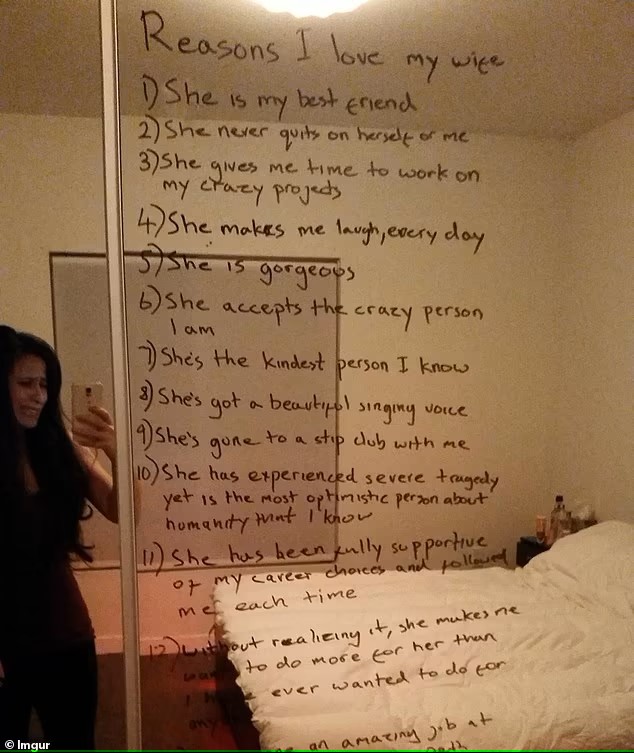 Reasons I love my wife
1) She is my best friend
2) She never quits on herself or me
3) She gives me time to work on
my crazy projects
4) She makes me laugh, every day
5) She is gorgeous
6) She accepts the crazy person
I am
7) She's the kindest person I know
8) She's got a beautiful singing voice
9) She's gone to a stip club with me
10) She has experienced severe tragedy
yet is the most optimistic person about
humanity that I know
11) She has been fully supportive
of my career choices and followed
me each time
12) Without realizing it, she makes me
to do more for her than
I ever wanted to do for
an amazing job at
Imgur